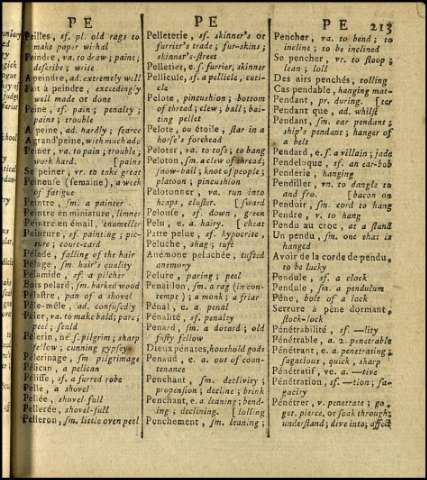 P E
P E
P E 213
Peilles, sf. pl. old rags to
make paper withal
Peindre, va. to draw; paint;
describe; write
A peindre, ad. extremely well
Fait à peindre, exceedingly
well made or done
Peine, sf. pain; penalty;
pains; trouble
A peine, ad. hardly; scarce
A grand'peine, with much ado
Peiner, va. to pain; trouble;
work hard. [pains
Se peiner, vr. to take great
Peneuse (semaine), a week
of fatigue
Peintre, sm. a painter
Peintre en miniature, limner
Peintre en émail, enameller
Peinture, sf. painting; pic-
ture; court-card
Pelade, falling of the hair
Pelage, sm. hair's quality
Pélamide, sf. a pilcher
Bois pelard, sm. barked wood
Pelâtre, pan of a shovel
Pêle-mêle, ad. confusedly
Peler, va. to make bald; pare;
peel; scald
Pélerin, ne s. pilgrim; sharp
fellow; cunning gypsey
Pélerinage, sm pilgrimage
Pélican, a pelican
Pelisse, sf. a furred robe
Pelle, a shovel
Pellée, shovel-full
Pellerée, shovel-full
Pelleron, sm. little oven peel
Pelleterie, sf. skinner's or
furrier's trade; fur-skins;
skinner's-street
Pelletier, e s. furrier, skinner
Pellicule, sf. a pellicle, cuti-
cle
Pelote, pincushion; bottom
of thread; clew; ball; bai-
ting pellet
Pelote, ou étoile, star in a
horse's forehead
Peloter, va. to toss; to bang
Peloton, sm. a clew of thread;
snow-ball; knot of people;
platoon; pincushion
Pelotonner, va. run into
heaps, cluster. [sward
Pelouse, sf. down, green
Pelu, e a. hairy. [cheat
Patte pelue, sf. hypocrite,
Peluche, shag; tuft
Anémone peluchée, tufted
anemony
Pelure, paring; peel
Penaillon, sm. a rag (in con-
tempt); a monk; a friar
Pénal, e a. penal
Pénalité, sf. penalty
Penard, sm. a dotard; old
fusty fellow
Dieux pénates, houshold gods
Penaud, e a. out of coun-
tenance
Penchant, sm. declivity;
propension; decline; brink
Penchant, e a. leaning; bend-
ing; declining. [lolling
Penchement, sm. leaning;
Pencher, va. to bend; to
incline; to be inclined
Se pencher, vr. to stoop;
lean; loll
Des airs penchés, rolling
Cas pendable, hanging mat-
Pendant, pr. during. [ter
Pendant que, ad. whilst
Pendant, sm. ear pendant;
ship's pendant; hanger of
a belt
Pendant, e s. a villain; jade
Pendeloque, sf. an ear-bob
Penderie, hanging
Pendiller, vn. to dangle to
and fro. [bacon on
Pendoir, sm. cord to hang
Pendre, v. to hang
Pendu au croc, at a stand
Un pendu, sm. one that is
hanged
Avoir de la corde de pendu,
to be lucky
Pendule, sf. a clock
Pendule, sm. a pendulum
Pêne, bolt of a lock
Serrure à pêne dormant,
stock-lock
Pénétrabilité, sf. —lity
Pénétrable, a. 2. penetrable
Pénétrant, e a. penetrating;
sagacious, quick, sharp
Pénétratif, ve a. —tive
Pénétration, sf. —tion; sa-
gacity
Pénétrer, v. penetrate; go,
get, pierce, or soak through;
understand; dive into; affect